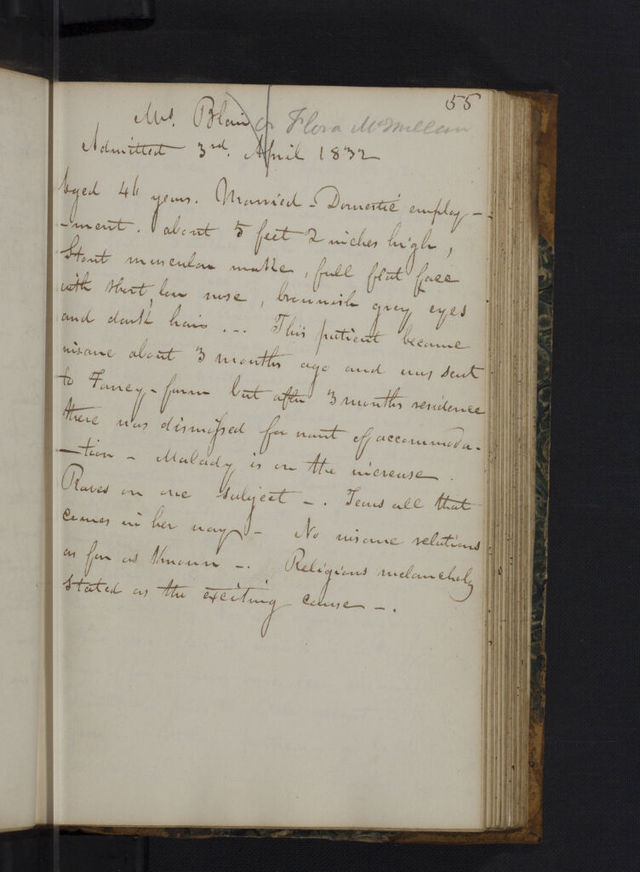 55
Mrs. Blair or Flora McMillan
Admitted 3rd. April 1832
Aged 46 years. Married - Domestic employ-
-ment. about 5 feet 2 inches high,
Stout muscular make, full flat face
with short, low nose, brownish grey eyes
and dark hair ... This patient became
insane about 3 months ago and was sent
to Fancy-farm but after 3 months residence
there was dismissed for want of accommoda-
-tion - Malady is on the increase.
Raves on one subject -. Tears all that
comes in her way - No insane relations
as far as known -. Religious melancholy
stated as the exciting cause -.